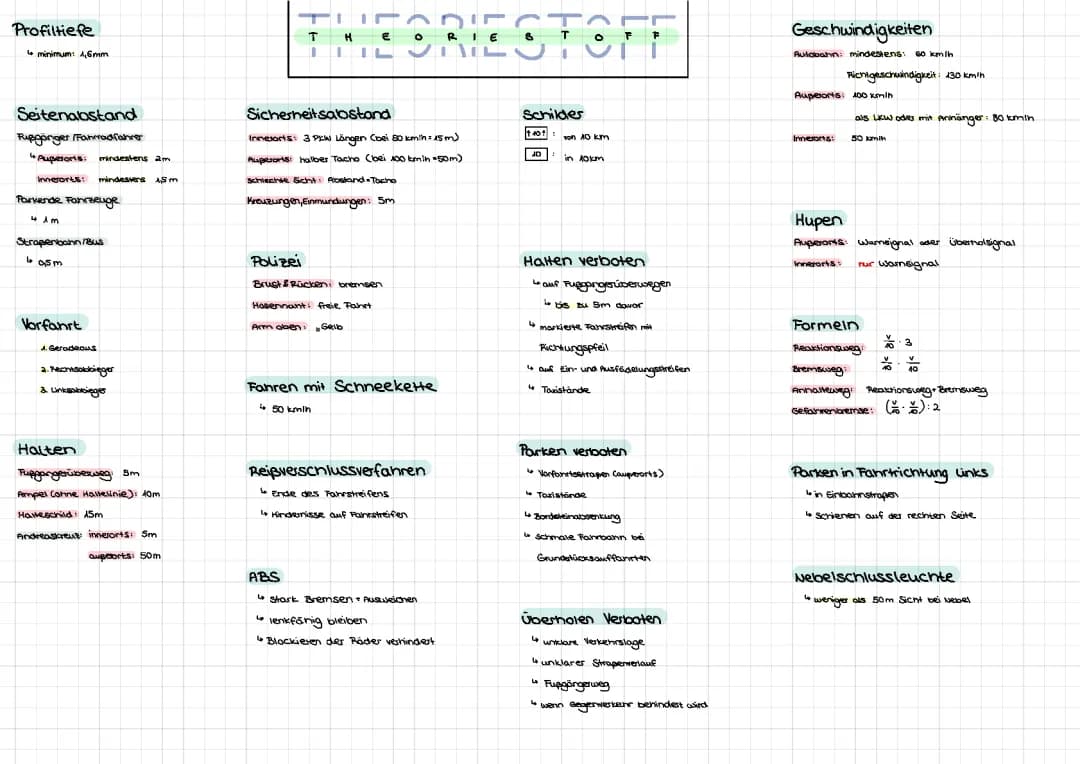 THEORIESTOFF
THEORIESTOFF
Profiltiefe
↳ minimum: 1,6mm
Seitenabstand
Fußgänger/Fahrradfahrer
↳ Außerorts: mindestens 2m
Innerorts: mindestens 1,5m
Parkende Fahrzeuge
↳ 1m
Straßenbahn/Bus
↳ 0,5m
Vorfahrt
1. Geradeaus
2. Rechtsabbieger
3. Linksabbieger
Halten
Fußgängerüberweg: 5m
Ampel (ohne Haltelinie): 10m
Halteschild: 15m
Andreaskreuz: innerorts: 5m
außerorts: 50m
Sicherheitsabstand
Innerorts: 3 PKW Längen (bei 50 km/h = 15m)
Außerorts: halber Tacho (bei 100 km/h = 50m)
Schlechte Sicht: Abstand = Tacho
Kreuzungen, Einmündungen: 5m
Polizei
Brust & Rücken: bremsen
Hosennaht: freie Fahrt
Arm oben: „Gelb
Fahren mit Schneekette
↳ 50 km/h
Reißverschlussverfahren
↳ Ende des Fahrstreifens
↳ Hindernisse auf Fahrstreifen
ABS
↳ Stark Bremsen + Ausweichen
↳ lenkfähig bleiben
↳ Blockieren der Räder verhindert
Schilder
↑10↑ : von 10 km
10 : in 10km
Halten verboten
↳ auf Fußgängerüberwegen
↳ bis zu 5m davor
↳ markierte Fahrstreifen mit
Richtungspfeil
↳ auf Ein- und Ausfädelungsstreifen
↳ Taxistände
Parken verboten
↳ Vorfahrtsstraßen (außerorts)
↳ Taxistände
↳ Bordsteinabsenkung
↳ schmale Fahrbahn bei
Grundstücksauffahrten
Überholen Verboten
↳ unklare Verkehrslage
↳ unklarer Straßenverlauf
↳ Fußgängerweg
↳ wenn Gegenverkehr behindert wird
Geschwindigkeiten
Autobahn: mindestens: 60 km/h
Richtgeschwindigkeit: 130 km/h
Außerorts: 100 km/h
als LKW oder mit Anhänger: 80 km/h
Innerorts: 50 km/h
Hupen
Außerorts: Warnsignal oder Überholsignal
Innerorts: nur Warnsignal
Formeln
Reaktionsweg: v/10 · 3
Bremsweg: v/10 · v/10
Anhalteweg: Reaktionsweg + Bremsweg
Gefahrenbremse: (v/10 · v/10) : 2
Parken in Fahrtrichtung Links
↳ in Einbahnstraßen
↳ Schienen auf der rechten Seite
Nebelschlussleuchte
↳ weniger als 50m Sicht bei Nebel